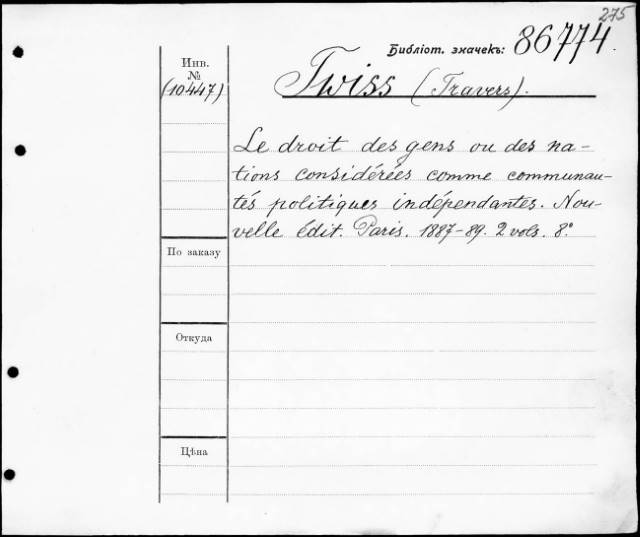 275
Библіот. значекъ: 86774.
Инв.
№
(10447)
Twiss (Travers).
Le droit des gens ou des na-
tions considérées comme communau-
tés politiques indépendantes. Nou-
velle édit. Paris. 1887-89. 2 vols. 8°
По заказу
Откуда
Цѣна